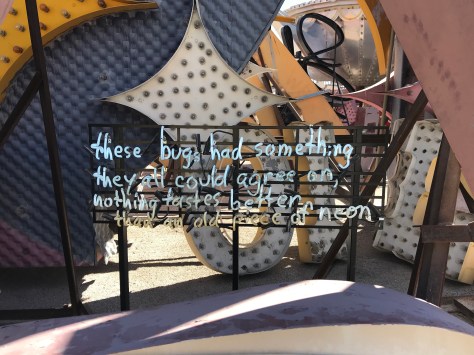 these bugs had something
they all could agree on,
nothing tastes better
than an old piece of neon